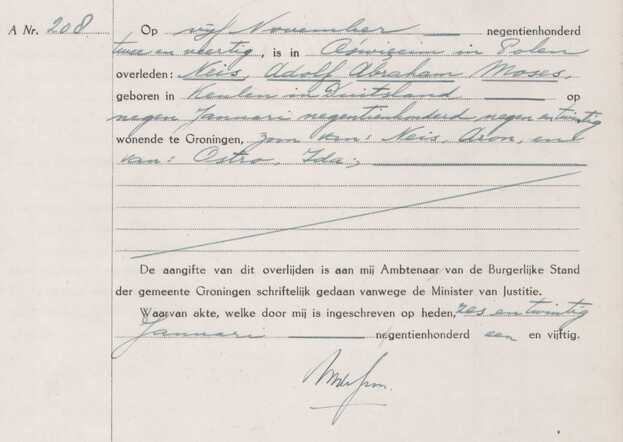 A Nr. 208
Op vijf November negentienhonderd
twee en veertig, is in Oswiecim in Polen
overleden: Neis, Adolf Abraham Moses,
geboren in Keulen in Duitsland op
negen Januari negentienhonderd negen en twintig
wonende te Groningen, zoon van: Neis, Aron, en
van: Ostro, Ida;
De aangifte van dit overlijden is aan mij Ambtenaar van de Burgerlijke Stand
der gemeente Groningen schriftelijk gedaan vanwege de Minister van Justitie.
Waarvan akte, welke door mij is ingeschreven op heden, zes en twintig
Januari negentienhonderd een en vijftig.